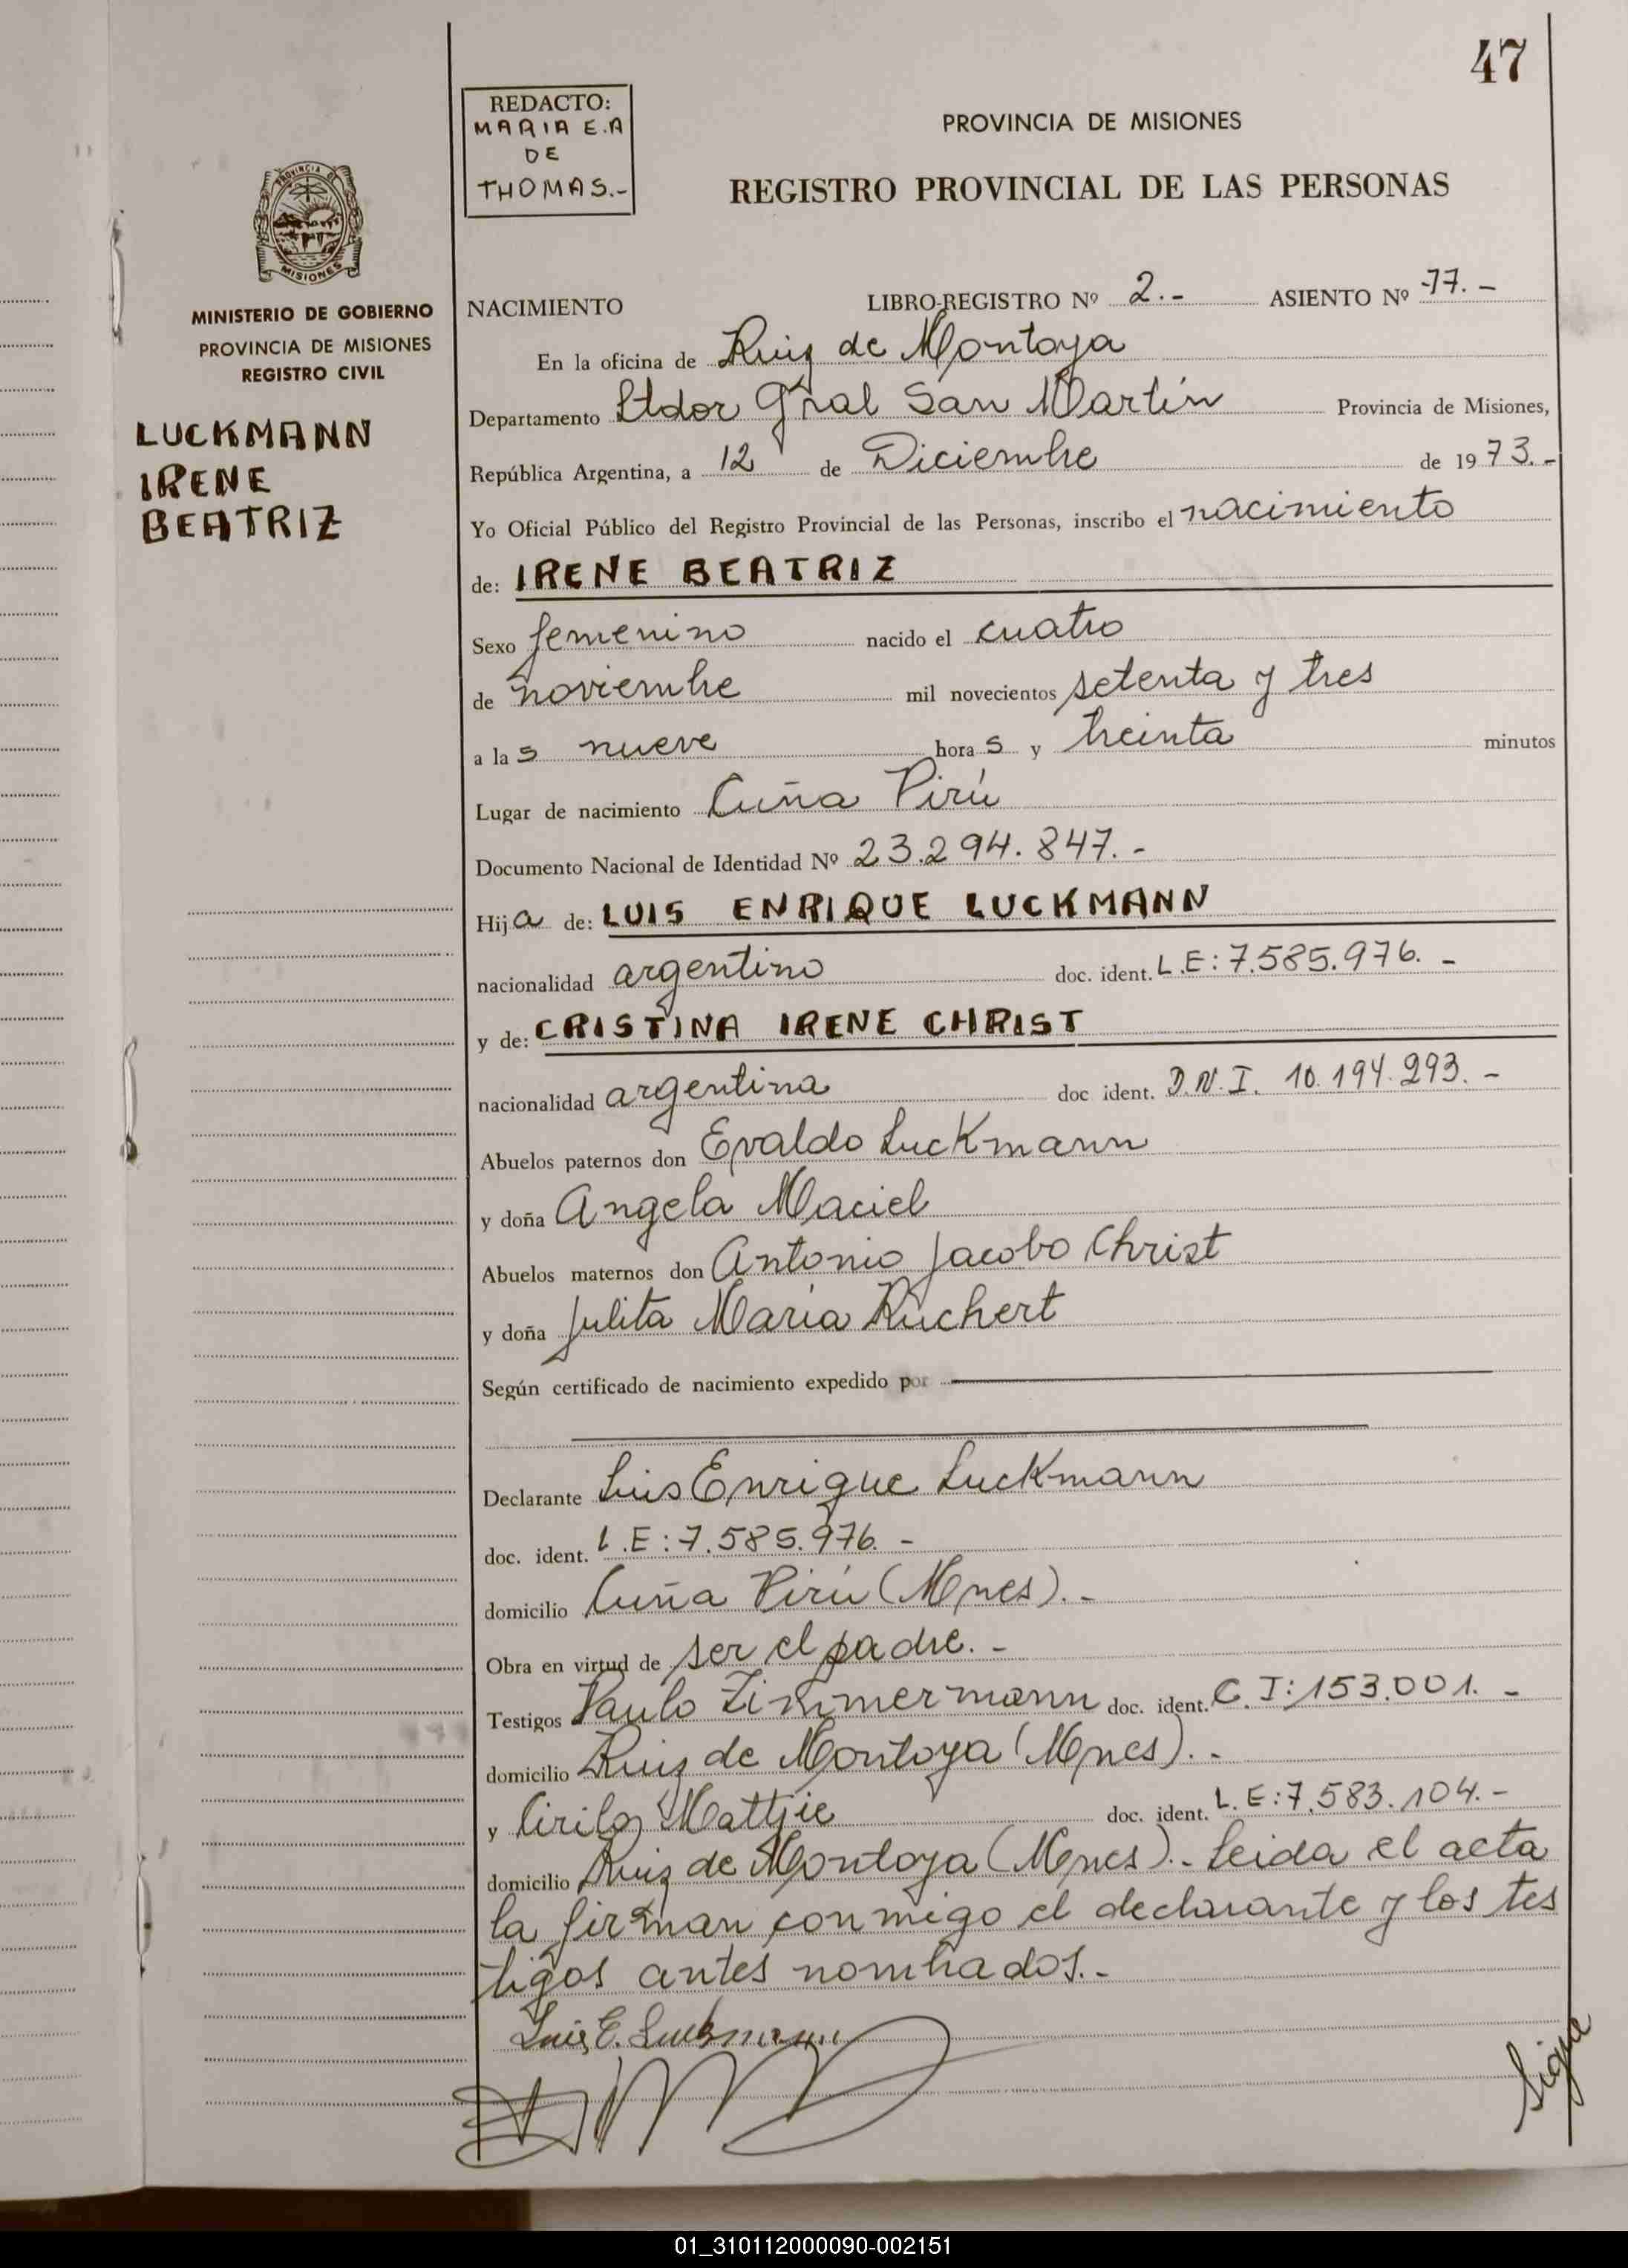 47
REDACTO:
MARIA E.A
DE
THOMAS.-
PROVINCIA DE MISIONES
REGISTRO PROVINCIAL DE LAS PERSONAS
PROVINCIA DE
MISIONES
MINISTERIO DE GOBIERNO
PROVINCIA DE MISIONES
REGISTRO CIVIL
LUCKMANN
IRENE
BEATRIZ
NACIMIENTO LIBRO-REGISTRO Nº 2.- ASIENTO Nº -77.-
En la oficina de Ruiz de Montoya
Departamento Ltdor Gral San Martín Provincia de Misiones,
República Argentina, a 12 de Diciembre de 1973.-
Yo Oficial Público del Registro Provincial de las Personas, inscribo el nacimiento
de: IRENE BEATRIZ
Sexo femenino nacido el cuatro
de noviembre mil novecientos setenta y tres
a las nueve horas y treinta minutos
Lugar de nacimiento Cuña Pirú
Documento Nacional de Identidad Nº 23.294.847.-
Hija de: LUIS ENRIQUE LUCKMANN
nacionalidad argentino doc. ident. L.E: 7.585.976.-
y de: CRISTINA IRENE CHRIST
nacionalidad argentina doc ident. D.N.I. 10.194.293.-
Abuelos paternos don Evaldo Luckmann
y doña Angela Maciel
Abuelos maternos don Antonio Jacobo Christ
y doña Julita Maria Ruchert
Según certificado de nacimiento expedido por
Declarante Luis Enrique Luckmann
doc. ident. L.E: 7.585.976.-
domicilio Cuña Pirú (Mnes).-
Obra en virtud de ser el padre.-
Testigos Paulo Zimmermann doc. ident. C.I: 153.001.-
domicilio Ruiz de Montoya (Mnes).-
y Cirilo Mattjie doc. ident. L.E: 7.583.104.-
domicilio Ruiz de Montoya (Mnes).- Leida el acta
la firman conmigo el declarante y los tes
tigos antes nombrados.-
Luis E. Luckmann
Sigue
01_310112000090-002151